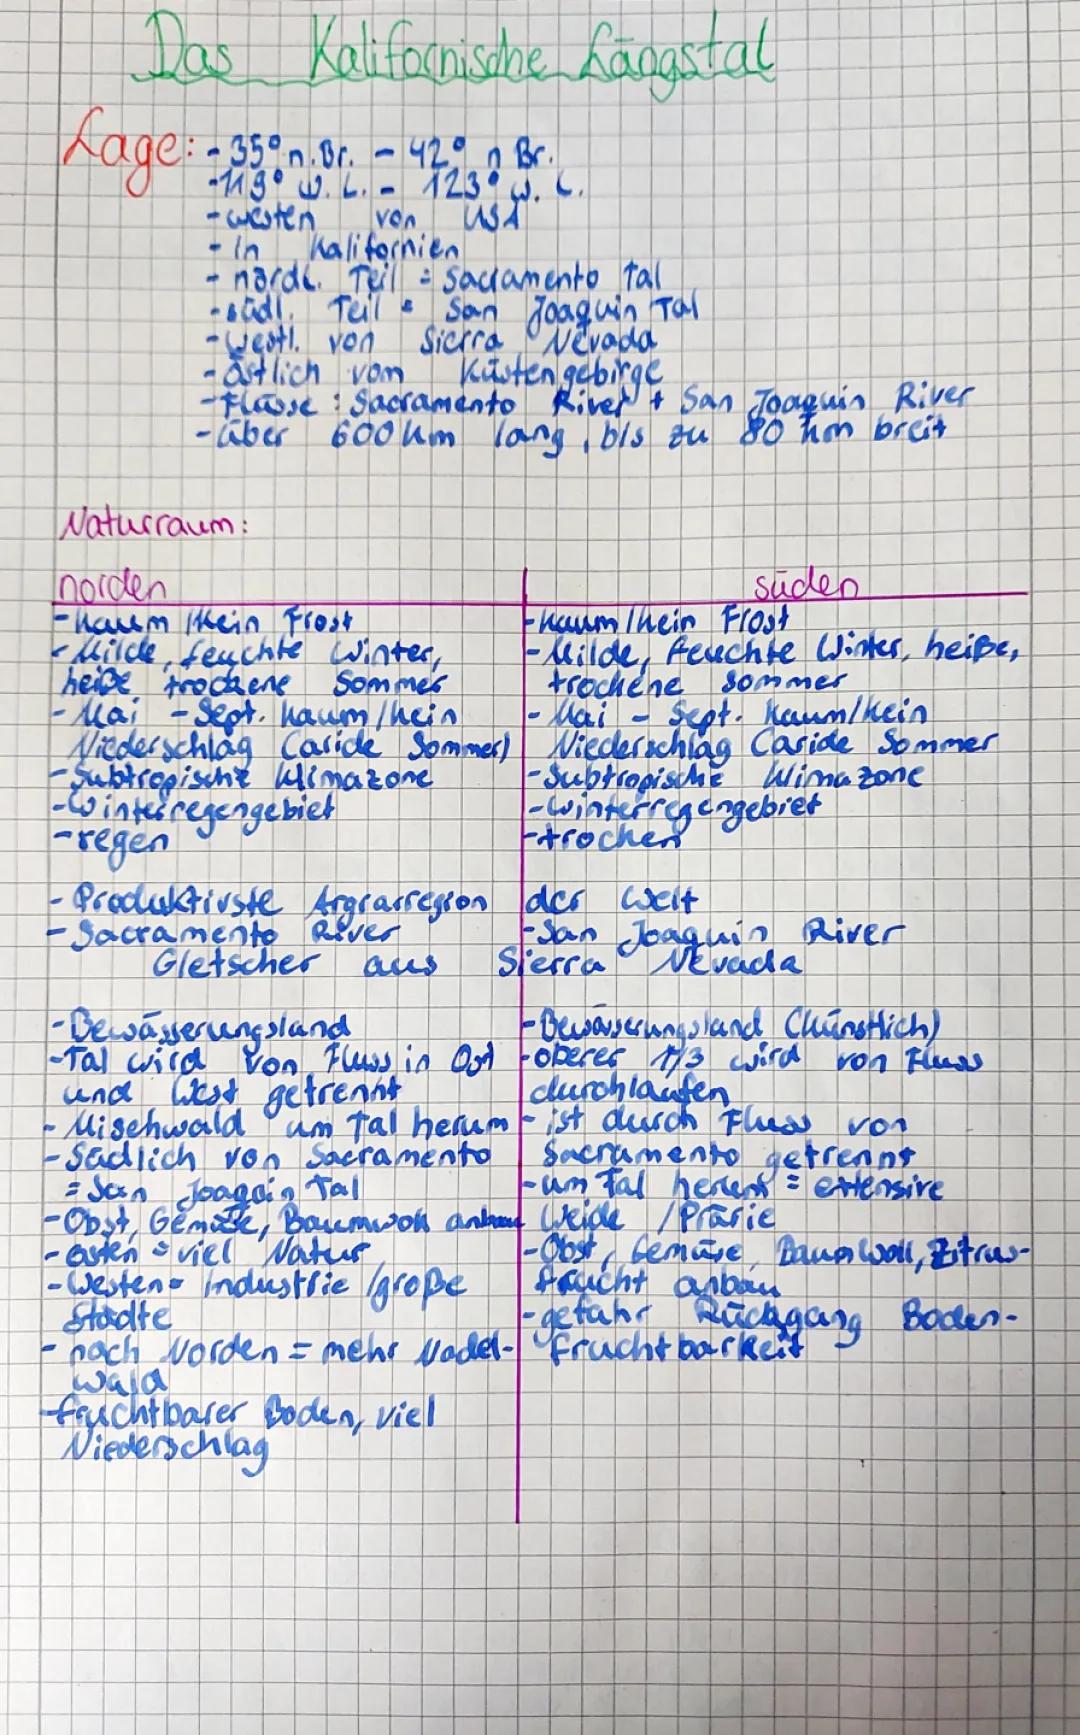 Das Kalifornische Längstal
Lage: - 35° n. Br. - 42° n Br.
- 119° w. L. - 123° w. L.
- westen von USA
- in Kalifornien
- nördl. Teil = Sacramento Tal
- südl. Teil = San Joaquin Tal
- westl. von Sierra Nevada
- Östlich vom Küstengebirge
- Flüsse : Sacramento River + San Joaquin River
- über 600 km lang, bis zu 80 km breit
Naturraum:
norden
- kaum / kein Frost
- Milde, feuchte Winter,
heiße trockene Sommer
- Mai - Sept. kaum / kein
Niederschlag (aride Sommer)
- Subtropische Klimazone
- Winterregengebiet
- regen
süden
- kaum / kein Frost
- Milde, feuchte Winter, heiße,
trockene sommer
- Mai - Sept. kaum/kein
Niederschlag (aride Sommer
- Subtropische Klimazone
- winterregengebiet
- trocken
- Produktivste Argrarregion der Welt
- Sacramento River
- San Joaquin River
Gletscher aus Sierra Nevada
- Bewässerungsland
- Tal wird von Fluss in Ost
und West getrennt
- Mischwald um Tal herum
- Südlich von Sacramento
= San Joaquin Tal
- Obst, Gemüse, Baumwoll anbau
- osten = viel Natur
- Westen = Industrie / große
Städte
- nach Norden = mehr Nadel-
wald
- fruchtbarer Boden, viel
Niederschlag
- Bewässerungsland (künstlich)
- oberer 1/3 wird von Fluss
durchlaufen
- ist durch Fluss von
Sacramento getrennt
- um Tal herum = extensive
Weide / Prärie
- Obst, Gemüse, Baumwoll, Zitrus-
frucht anbau
- gefahr Rückgang Boden-
fruchtbarkeit